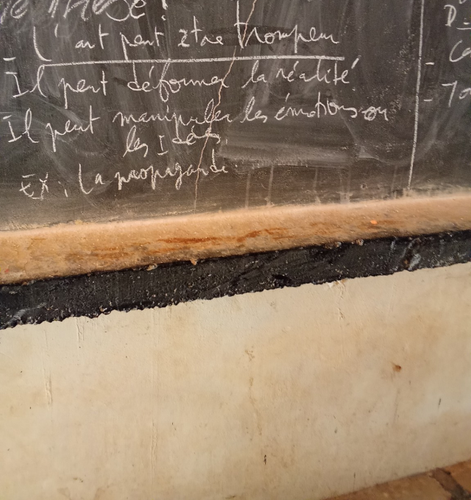 - L'art peut être trompeur
Il peut déformer la réalité
Il peut manipuler les émotions ou
les Idées.
Ex : La propagande